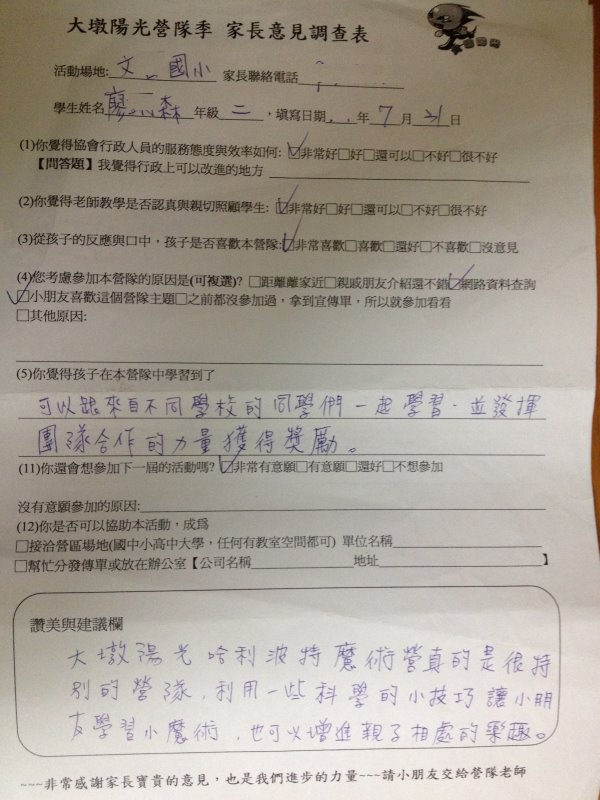 大墩陽光營隊季 家長意見調查表
活動場地: 文 國小 家長聯絡電話
學生姓名 廖 森 年級 二 ，填寫日期 年 7 月 31 日
(1)你覺得協會行政人員的服務態度與效率如何: ☑非常好□好□還可以□不好□很不好
【問答題】我覺得行政上可以改進的地方
(2)你覺得老師教學是否認真與親切照顧學生: ☑非常好□好□還可以□不好□很不好
(3)從孩子的反應與口中，孩子是否喜歡本營隊: ☑非常喜歡□喜歡□還好□不喜歡□沒意見
(4)您考慮參加本營隊的原因是(可複選)? □距離離家近□親戚朋友介紹還不錯☑網路資料查詢
☑小朋友喜歡這個營隊主題□之前都沒參加過，拿到宣傳單，所以就參加看看
□其他原因:
(5)你覺得孩子在本營隊中學習到了
可以跟來自不同學校的同學們一起學習，並發揮
團隊合作的力量獲得獎勵。
(11)你還會想參加下一屆的活動嗎? ☑非常有意願□有意願□還好□不想參加
沒有意願參加的原因:
(12)你是否可以協助本活動，成為
□接洽營區場地(國中小高中大學，任何有教室空間都可) 單位名稱
□幫忙分發傳單或放在辦公室【公司名稱 地址 】
讚美與建議欄
大墩陽光哈利波特魔術營真的是很特
別的營隊，利用一些科學的小技巧讓小朋
友學習小魔術，也可以增進親子相處的樂趣。
~~~非常感謝家長寶貴的意見，也是我們進步的力量~~~請小朋友交給營隊老師